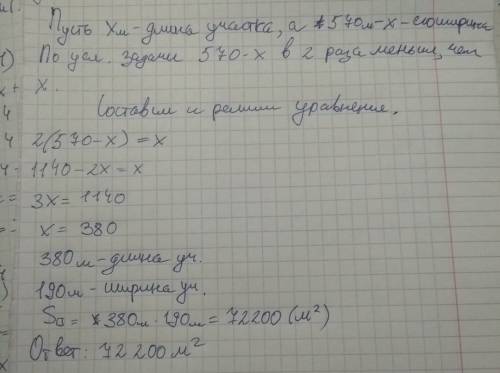 Пусть Xм - длина участка, а 570м-х - ширина
1) По усл. задачи 570-х в 2 раза меньше, чем
х.
Составим и решим уравнение.
2(570-х) = х
1140-2х = х
3х = 1140
х = 380
380м - длина уч.
190м - ширина уч.
S□ = 380м · 190м = 72200 (м²)
Ответ: 72 200 м²